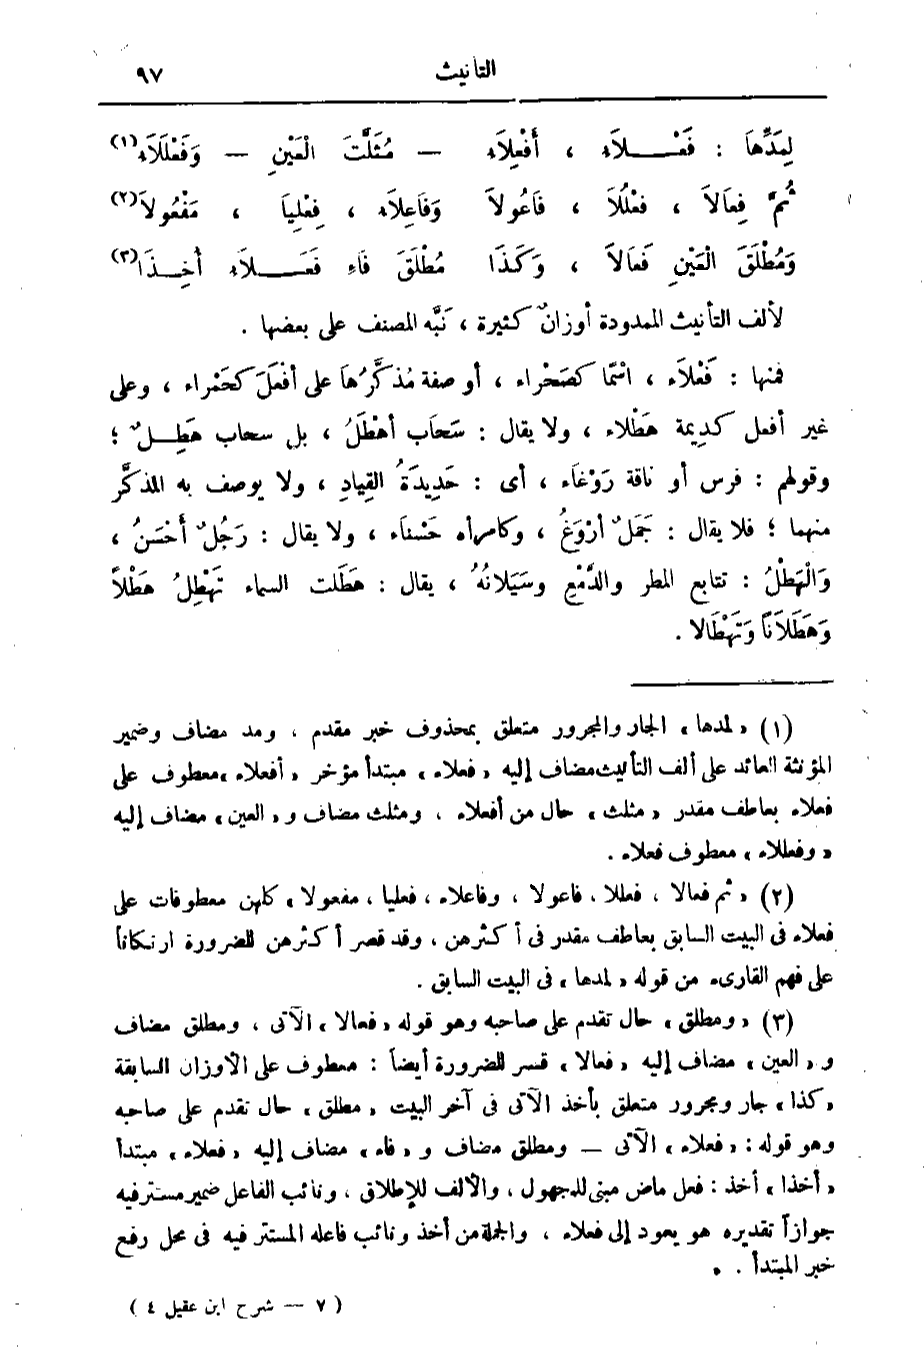 التأنيث ٩٧
لِمَدِّهَا : فَعْـــلاَء ، أَفْعِلاَء — مُثَلَّثَ الْعَيْنِ — وَفَعْلَلاَء (١)
ثُمَّ فِعَالاَ ، فُعْلُلاَ ، فَاعُولاَ وَفَاعِلاَء ، فِعْلِيَا ، مَفْعُولاَ (٢)
وَمُطْلَقَ الْعَيْنِ فَعَالاَ ، وَكَذَا مُطْلَقَ فَاءٍ فَعَـــلاَء أُخِــذَا (٣)
لألف التأنيث الممدودة أوزانٌ كثيرة ، نَبَّه المصنف على بعضها .
فمنها : فَعْلاَء ، اسْمًا كصَحْراء ، أو صفة مُذكَّرُهَا على أفْعَلَ كحَمْراء ، وعلى
غير أفعل كدِيمة هَطْلاء ، ولا يقال : سَحَاب أهْطَلُ ، بل سحاب هَطِــلٌ ؛
وقولهم : فرس أو ناقة رَوْغَاء ، أى : حَدِيدَةُ القِيادِ ، ولا يوصف به المذكَّر
منهما ؛ فلا يقال : جَمَلٌ أرْوَغُ ، وكامرأه حَسْناَء ، ولا يقال : رَجُلٌ أَحْسَنُ ،
وَالْهَطْلُ : تتابع المطر والدَّمْعِ وسَيَلانُهُ ، يقال : هَطَلت السماء تَهْطِلُ هَطْلاً
وَهَطَلاَنًا وَتَهْطَالا .
(١) « لمدها » الجار والمجرور متعلق بمحذوف خبر مقدم ، ومد مضاف وضمير
المؤنثة العائد على ألف التأنيث مضاف إليه « فعلاء » مبتدأ مؤخر « أفعلاء » معطوف على
فعلاء بعاطف مقدر « مثلث » حال من أفعلاء ، ومثلث مضاف و « العين » مضاف إليه
« وفعللاء » معطوف فعلاء .
(٢) « ثم فعالا ، فعللا ، فاعولا ، وفاعلاء ، فعليا ، مفعولا » كلهن معطوفات على
فعلاء فى البيت السابق بعاطف مقدر فى أكثرهن ، وقد قصر أكثرهن للضرورة ارتكانا
على فهم القارىء من قوله « لمدها » فى البيت السابق .
(٣) « ومطلق » حال تقدم على صاحبه وهو قوله « فعالا » الآتى ، ومطلق مضاف
و « العين » مضاف إليه « فعالا » قسر للضرورة أيضاً : معطوف على الأوزان السابقة
« كذا » جار ومجرور متعلق بأخذ الآتى فى آخر البيت « مطلق » حال تقدم على صاحبه
وهو قوله : « فعلاء » الآتى — ومطلق مضاف و « فاء » مضاف إليه « فعلاء » مبتدأ
« أخذا » أخذ : فعل ماض مبنى للمجهول ، والألف للإطلاق ، ونائب الفاعل ضمير مستتر فيه
جوازاً تقديره هو يعود إلى فعلاء ، والجملة من أخذ ونائب فاعله المستتر فيه فى محل رفع
خبر المبتدأ .
( ٧ — شرح ابن عقيل ٤ )